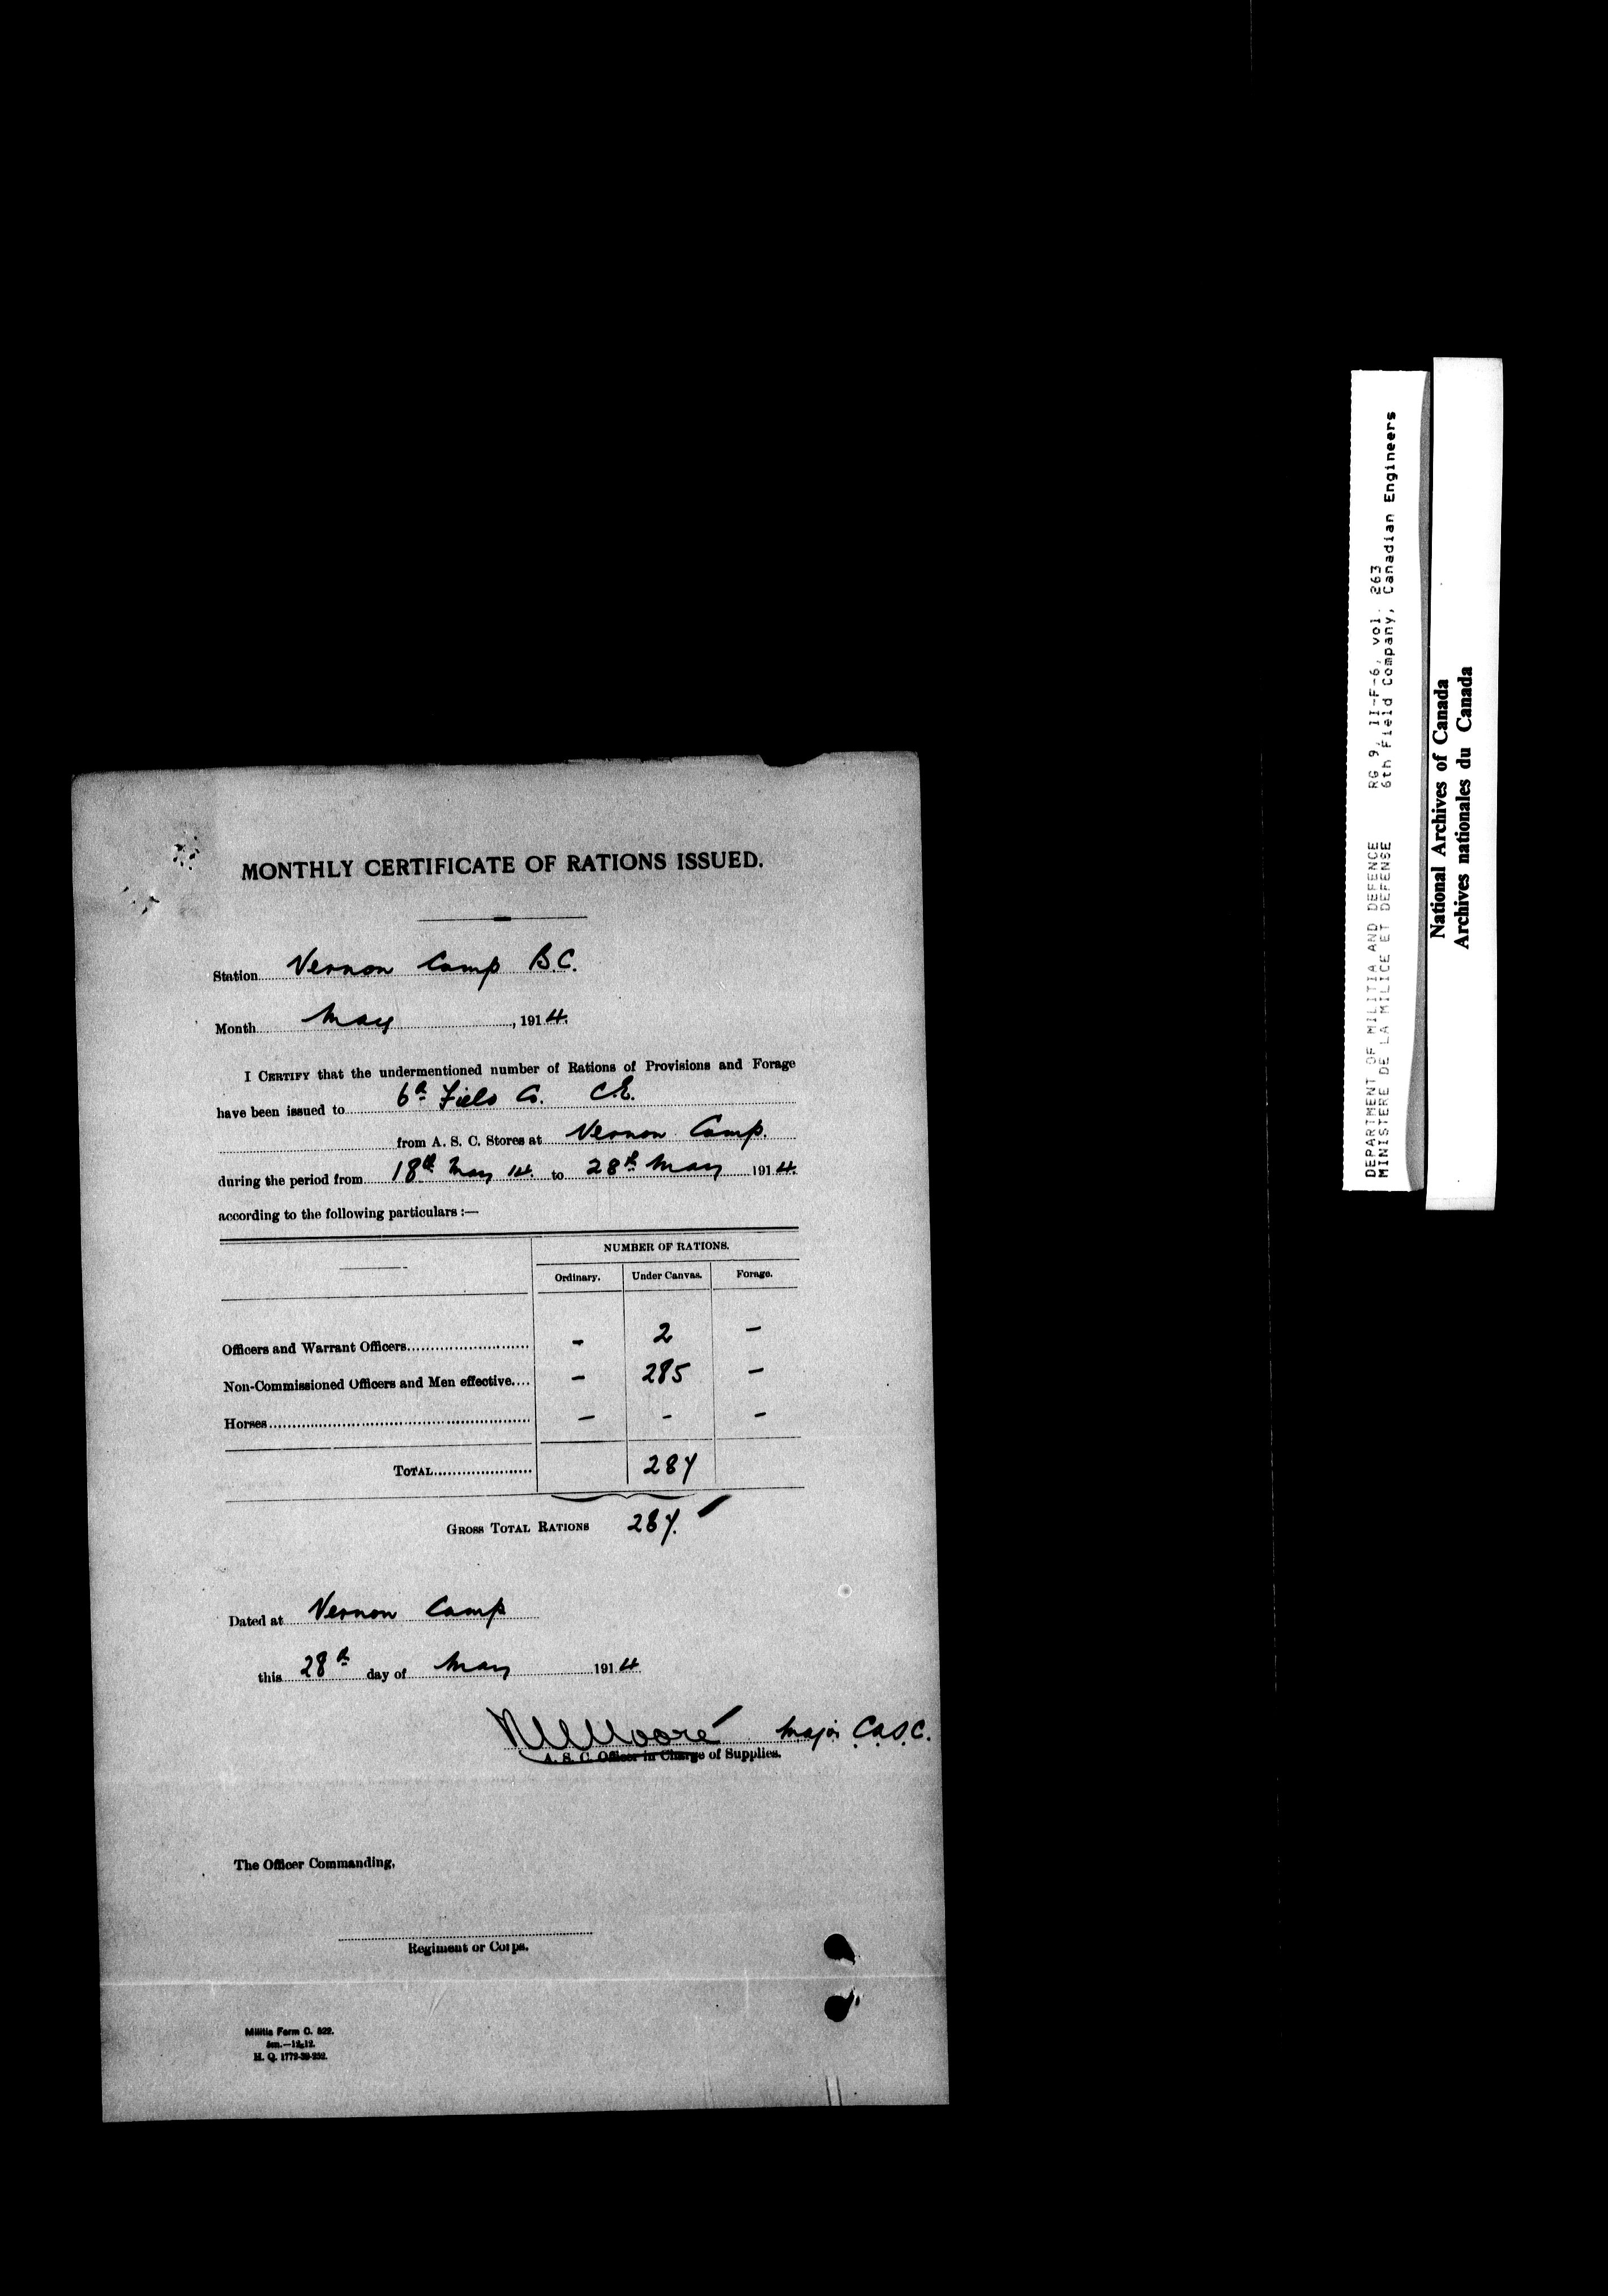 MONTHLY CERTIFICATE OF RATIONS ISSUED.
Station Vernon Camp B.C.
Month May , 1914.
I CERTIFY that the undermentioned number of Rations of Provisions and Forage
have been issued to 6th Field Co. C.E.
from A. S. C. Stores at Vernon Camp.
during the period from 18th May 14. to 28th May 1914.
according to the following particulars :—
NUMBER OF RATIONS.
Ordinary. Under Canvas. Forage.
Officers and Warrant Officers - 2 -
Non-Commissioned Officers and Men effective - 285 -
Horses - - -
TOTAL 287
GROSS TOTAL RATIONS 287.
Dated at Vernon Camp
this 28th day of May 1914
Moore Major C.A.S.C.
A. S. C. Officer in Charge of Supplies.
The Officer Commanding,
Regiment or Corps.
Militia Form C. 822.
5m.—12-12.
H. Q. 1772-39-252.
DEPARTMENT OF MILITIA AND DEFENCE RG 9, II-F-6, vol. 263
MINISTERE DE LA MILICE ET DEFENSE 6th Field Company, Canadian Engineers
National Archives of Canada
Archives nationales du Canada